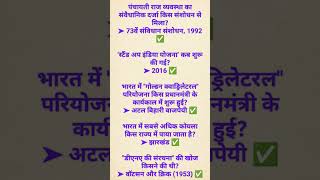 पंचायती राज व्यवस्था का
संवैधानिक दर्जा किस संशोधन से
मिला?
➤ 73वें संविधान संशोधन, 1992
✅
'स्टैंड अप इंडिया योजना' कब शुरू
की गई?
➤ 2016 ✅
भारत में "गोल्डन क्वाड्रिलेटरल"
परियोजना किस प्रधानमंत्री के
कार्यकाल में शुरू हुई?
➤ अटल बिहारी वाजपेयी ✅
भारत में सबसे अधिक कोयला
किस राज्य में पाया जाता है?
➤ झारखंड ✅
"डीएनए की संरचना" की खोज
किसने की थी?
➤ वॉटसन और क्रिक (1953) ✅
भारत में
"गोल्डन क्वाड्रिलेटरल"
परियोजना किस
प्रधानमंत्री के
➤ अटल
✅